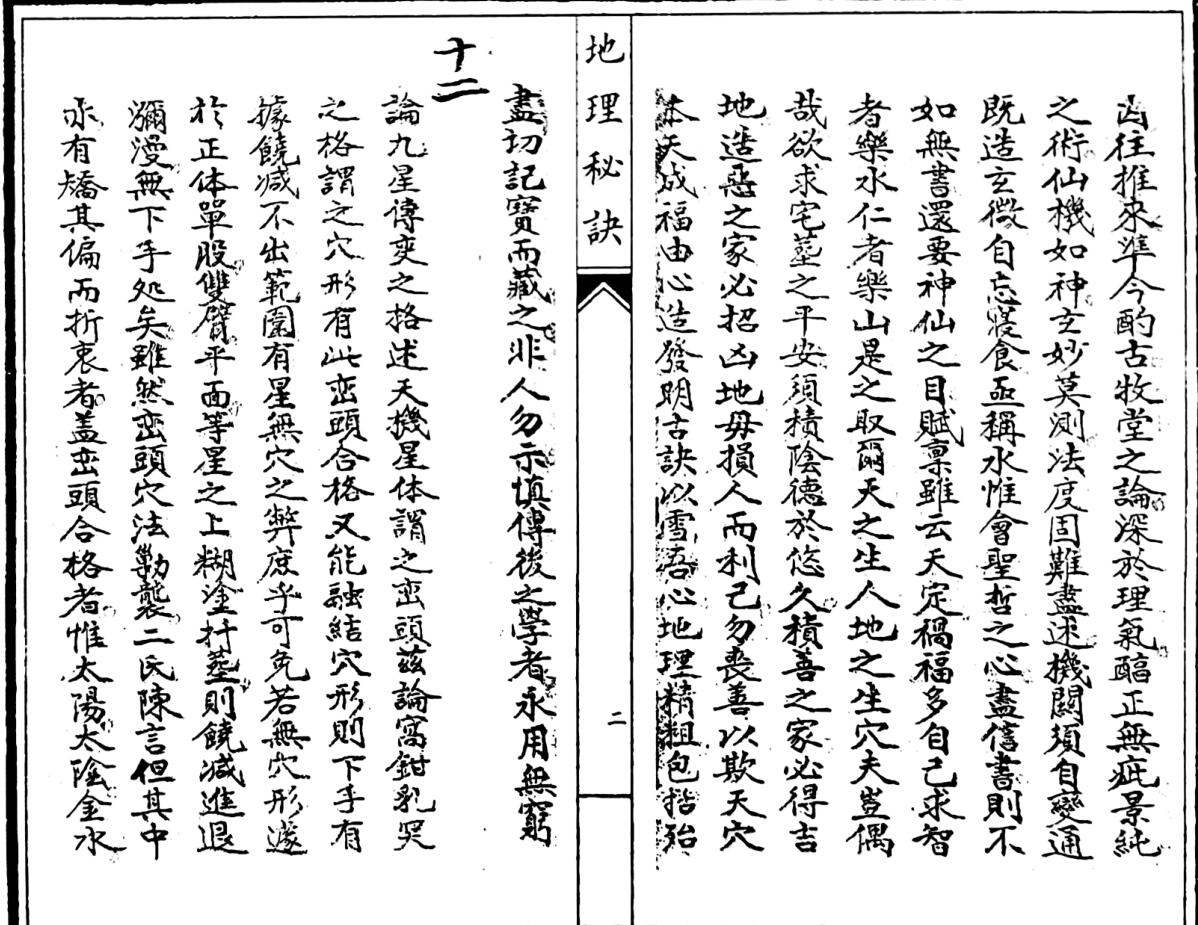 凶往推來準今酌古牧堂之論深於理氣醇正無疵景純
之術仙機如神玄妙莫測法度固難盡述機關須自變通
既造玄微自忘寢食亟稱水惟會聖哲之心盡信書則不
如無書還要神仙之目賦稟雖云天定禍福多自己求智
者樂水仁者樂山是之取爾天之生人地之生穴夫豈偶
哉欲求宅墓之平安須積陰德於悠久積善之家必得吉
地造惡之家必招凶地毋損人而利己勿喪善以欺天穴
本天成福由心造發明古訣以雪吾心地理精粗包括殆
地理秘訣
二
盡切記寶而藏之非人勿示慎傳後之學者永用無窮
十二
論九星傳变之格述天機星体謂之峦頭茲論窩鉗乳突
之格謂之穴形有此峦頭合格又能融結穴形則下手有
據饒减不出範圍有星無穴之弊庶乎可免若無穴形遽
於正体單股雙臂平面等星之上糊塗扦塟則饒减進退
瀰漫無下手处矣雖然峦頭穴法勦襲二氏陳言但其中
亦有矯其偏而折衷者盖峦頭合格者惟太陽太陰金水